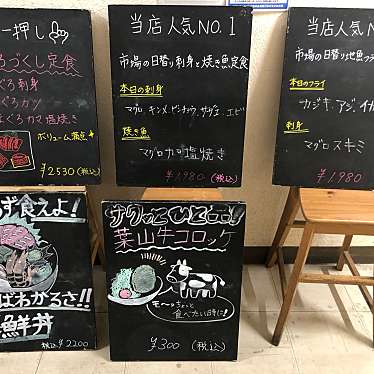 一押し
ろづくし定食
ぐろ刺身
ぐろカツ
ぐろカマ塩焼き
ボリューム満点
¥2530(税込)
当店人気NO.1
市場の日替り刺身と焼き魚定食
本日の刺身
マグロ、キンメ、ビンチョウ、サザエ、エビ
焼き魚
マグロカマ塩焼き
¥1980 (税込)
当店人気N
市場の日替り地魚フラ
本日のフライ
カジキ、アジ、イカ
刺身
マグロスキミ
¥1980
ず食えよ!
ばわかるさ!!
鮮丼
税込¥2200
サクッとひとロ!!
葉山牛コロッケ
モ〜ちょっと
食べたい時に!
¥300 (税込)